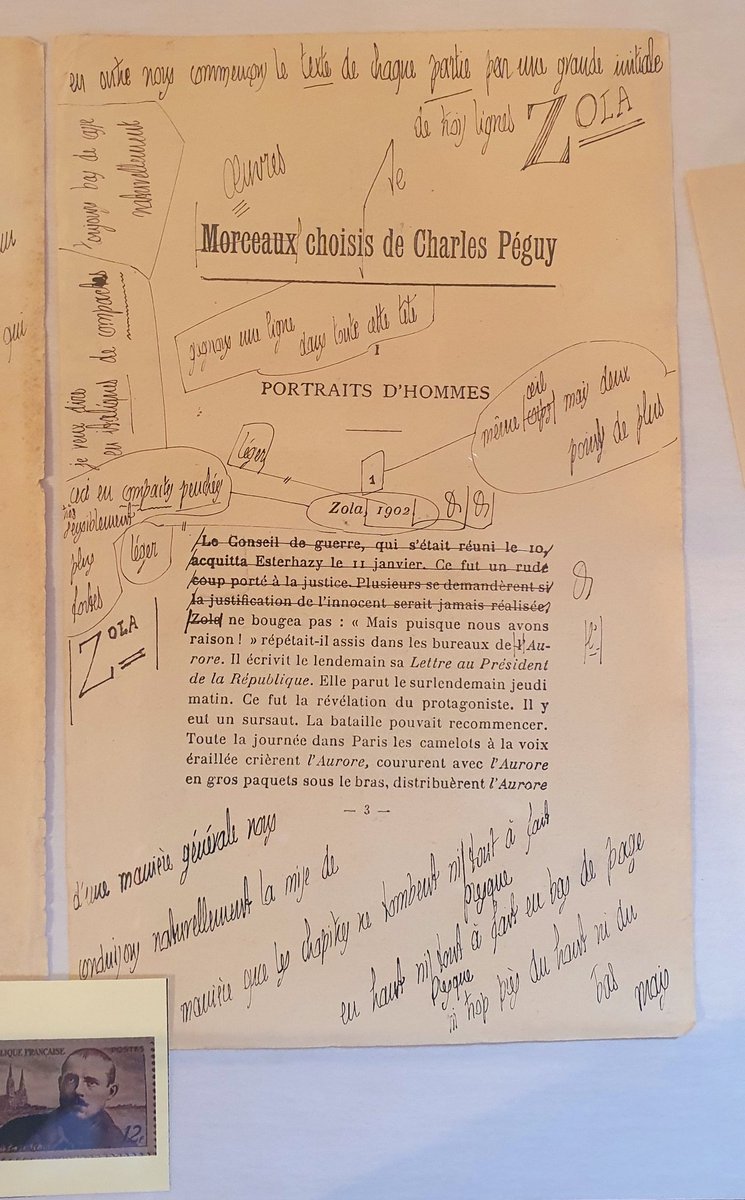 en outre nous commençons le texte de chaque partie par une grande initiale
de trois lignes ZOLA
toujours bas de casse
naturellement
œuvres
de
Morceaux choisis de Charles Péguy
gagnons une ligne
dans toute cette tête
je veux dire
en italiques de compactes
I
PORTRAITS D'HOMMES
même œil corps mais deux
points de plus
léger
1
ceci en compactes penchées
très
sensiblement
plus
fortes
léger
Zola, 1902
Le Conseil de guerre, qui s'était réuni le 10,
acquitta Esterhazy le 11 janvier. Ce fut un rude
coup porté à la justice. Plusieurs se demandèrent si
la justification de l'innocent serait jamais réalisée.
Zola ne bougea pas : « Mais puisque nous avons
raison ! » répétait-il assis dans les bureaux de l'Au-
rore. Il écrivit le lendemain sa Lettre au Président
de la République. Elle parut le surlendemain jeudi
matin. Ce fut la révélation du protagoniste. Il y
eut un sursaut. La bataille pouvait recommencer.
Toute la journée dans Paris les camelots à la voix
éraillée crièrent l'Aurore, coururent avec l'Aurore
en gros paquets sous le bras, distribuèrent l'Aurore
ZOLA
— 3 —
d'une manière générale nous
conduisons naturellement la mise de
manière que les chapitres ne tombent ni tout à fait
presque
en haut ni tout à fait en bas de page
presque
ni trop près du haut ni du
bas mais
qui
LIQUE FRANÇAISE POSTES
12F